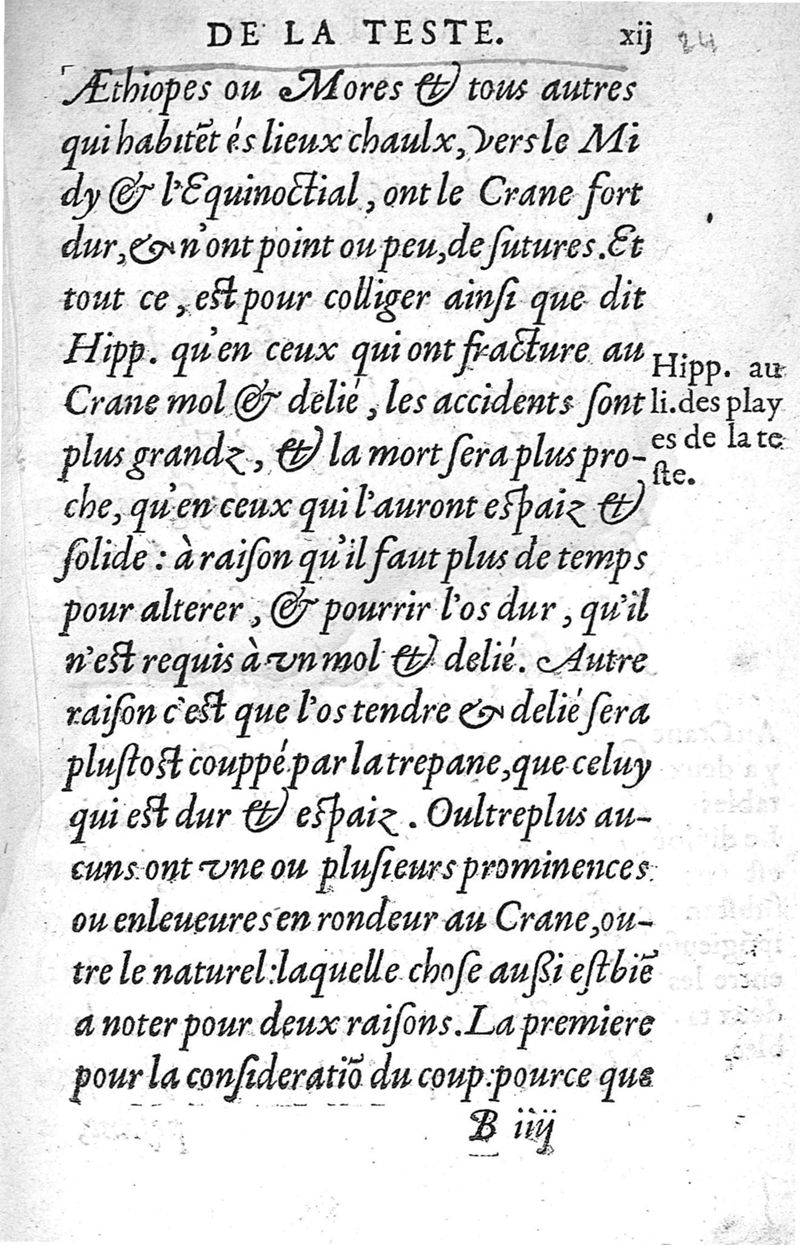 DE LA TESTE. xij 24
Æthiopes ou Mores & tous autres
qui habitẽt és lieux chaulx, vers le Mi
dy & l'Equinoctial, ont le Crane fort
dur, & n'ont point ou peu, de ſutures. Et
tout ce, est pour colliger ainſi que dit
Hipp. qu'en ceux qui ont fracture au
Crane mol & delié, les accidents ſont
plus grandz, & la mort ſera plus pro-
che, qu'en ceux qui l'auront espaiz &
ſolide : à raiſon qu'il faut plus de temps
pour alterer, & pourrir l'os dur, qu'il
n'est requis à vn mol & delié. Autre
raiſon c'est que l'os tendre & delié ſera
pluſtost couppé par la trepane, que celuy
qui est dur & espaiz. Oultreplus au-
cuns ont vne ou pluſieurs prominences
ou enleueures en rondeur au Crane, ou-
tre le naturel: laquelle choſe auſſi eſt biẽ
a noter pour deux raiſons. La premiere
pour la conſideratiõ du coup: pource que
B iiij
Hipp. au
li. des play
es de la te
ſte.